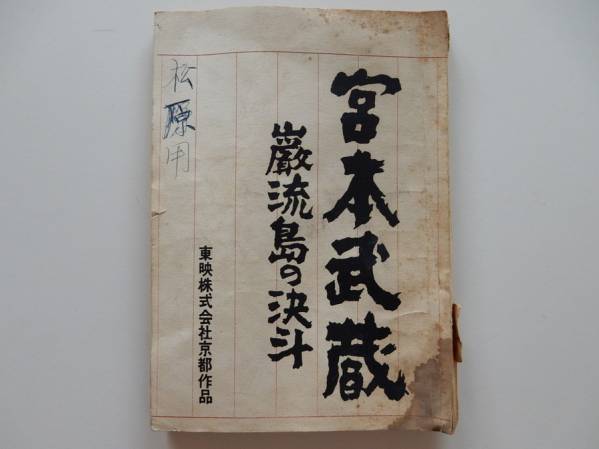 宮本武蔵
巌流島の決斗
東映株式会社京都作品
松原用